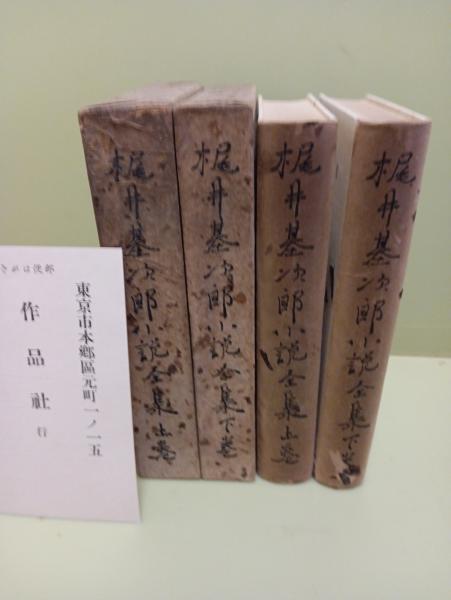 郵便はがき
東京市本郷區元町一ノ一五
作品社 行
梶井基次郎小説全集上巻
梶井基次郎小説全集下巻
梶井基次郎小説全集上巻
梶井基次郎小説全集下巻